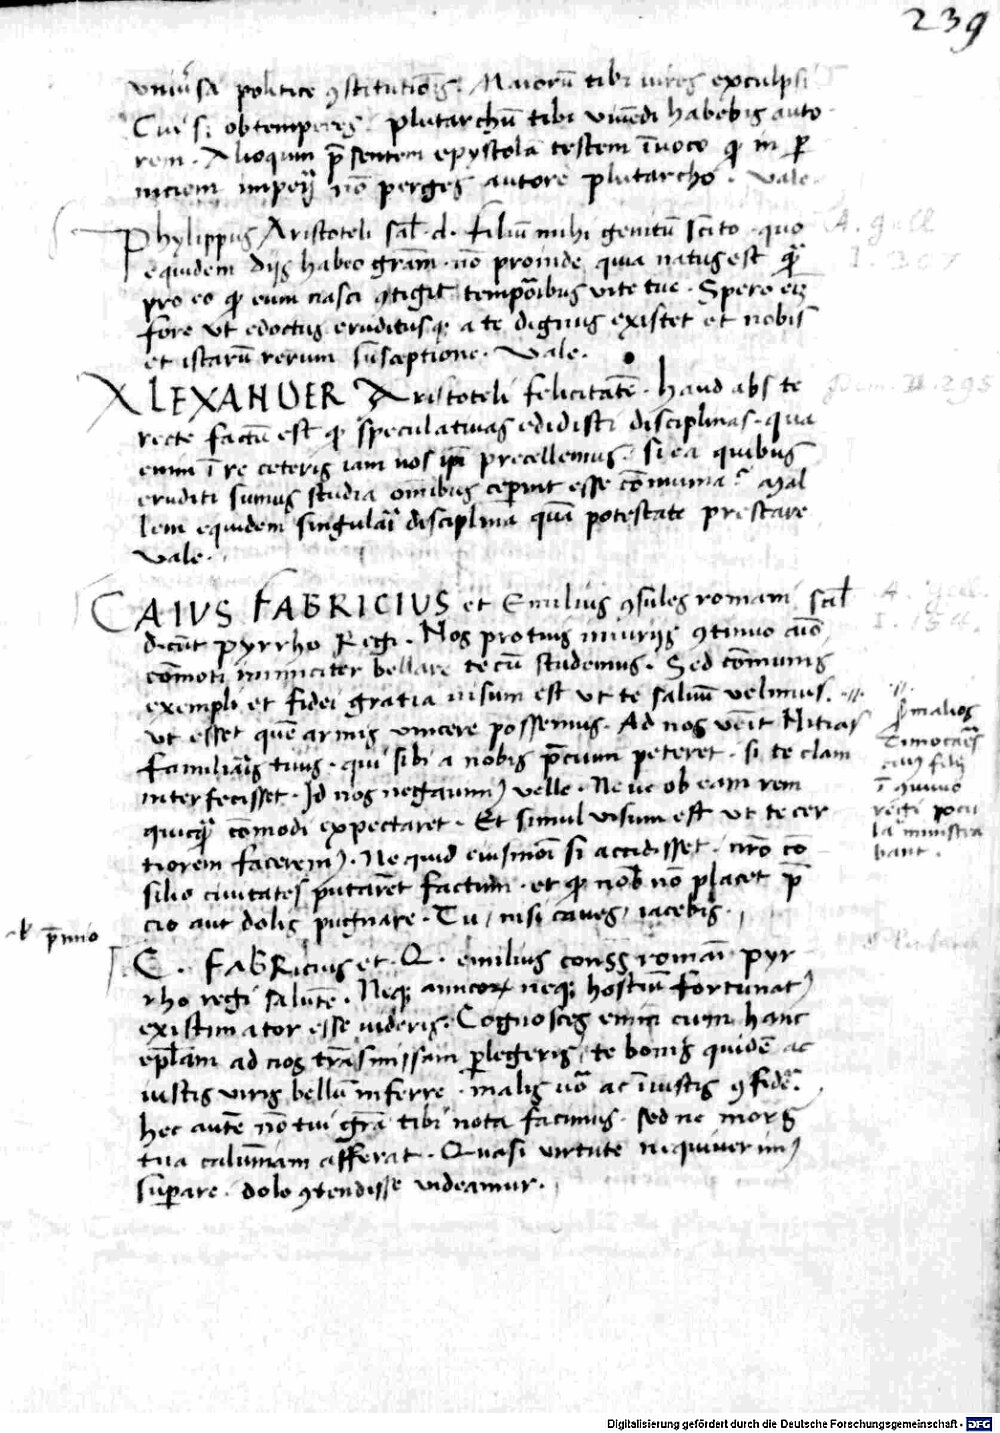 239
vniũsa politice ꝯstitutiõis. Maiorũ tibi vires exculpsi
Cui si obtemperes. plutarchũ tibi viuẽdi habebis auto
rem. Alioquin p̃sentem epystolã testem ĩuoco ꝙ in ꝑ
niciem imperij nõ perges autore plutarcho. Vale.
Phylippus Aristoteli sal̃. d. Filiũ mihi genitũ scito. quo
equidem dijs habeo grãm. nõ proinde quia natus est quã
pro eo ꝙ eum nasci ꝯtigit tempõribus vite tue. Spero eũ
fore vt edoctus eruditusqꝫ a te dignus existet et nobis
et istarũ rerum susceptione. Vale.
ALEXANDER Aristoteli felicitatẽ. Haud abs te
recte factũ est ꝙ speculatiuas edidisti disciplinas. qua
enim ĩ re ceteris iam nos ip̃i precellemus. si ea quibus
eruditi sumus studia om̃ibus ceperint esse cõmunia? Mal
lem equidem singulari disciplina quã potestate prestare
Vale.
CAIVS FABRICIVS et Emilius ꝯsules romani sal̃
dicũt pyrrho Regi. Nos pro tuis iniurijs ꝯtinuo aĩo
cõmoti inimiciter bellare tecũ studemus. Sed cõmunis
exempli et fidei gratia uisum est vt te saluũ velimus.
vt esset quẽ armis vincere possemus. Ad nos vẽit Nitias
familiãris tuus. qui sibi a nobis p̃cium peteret. si te clam
interfecisset. Id nos negauimꝰ velle. Neue ob eam rem
quicquã cõmodi expectaret. Et simul visum est vt te cer
tiorem faceremꝰ. Ne quid eiusmõi si accidisset. nr̃o cõ
silio ciuitates putarẽt factum. et ꝙ nob̃ nõ placet p̃
cio aut dolis pugnare. Tu, nisi caues, iacebis.
ꝑ malios
Timocães
eius filij
ĩ ꝯuiuio
regi pocu
la ministra
bant.
vl̃ p̃mio
C. FABRicius et. Q. emilius conss romani pyr
rho regi salutẽ. Neqꝫ amicoꝝ neqꝫ hostiũ fortunatꝰ
existimator esse uideris. Cognosces enim cum hanc
epl̃am ad nos trãsmissam ꝑlegeris, te bonis quidẽ ac
iustis viris bellũ inferre. malis uõ ac ĩiustis ꝯfidẽ.
hec autẽ nõ tui grã tibi nota facimus. sed ne mors
tua calumniam afferat. Quasi virtute nequiuerimꝰ
suꝑare. dolo ꝯtendisse uideamur.
A. gell
Digitalisierung gefördert durch die Deutsche Forschungsgemeinschaft - DFG